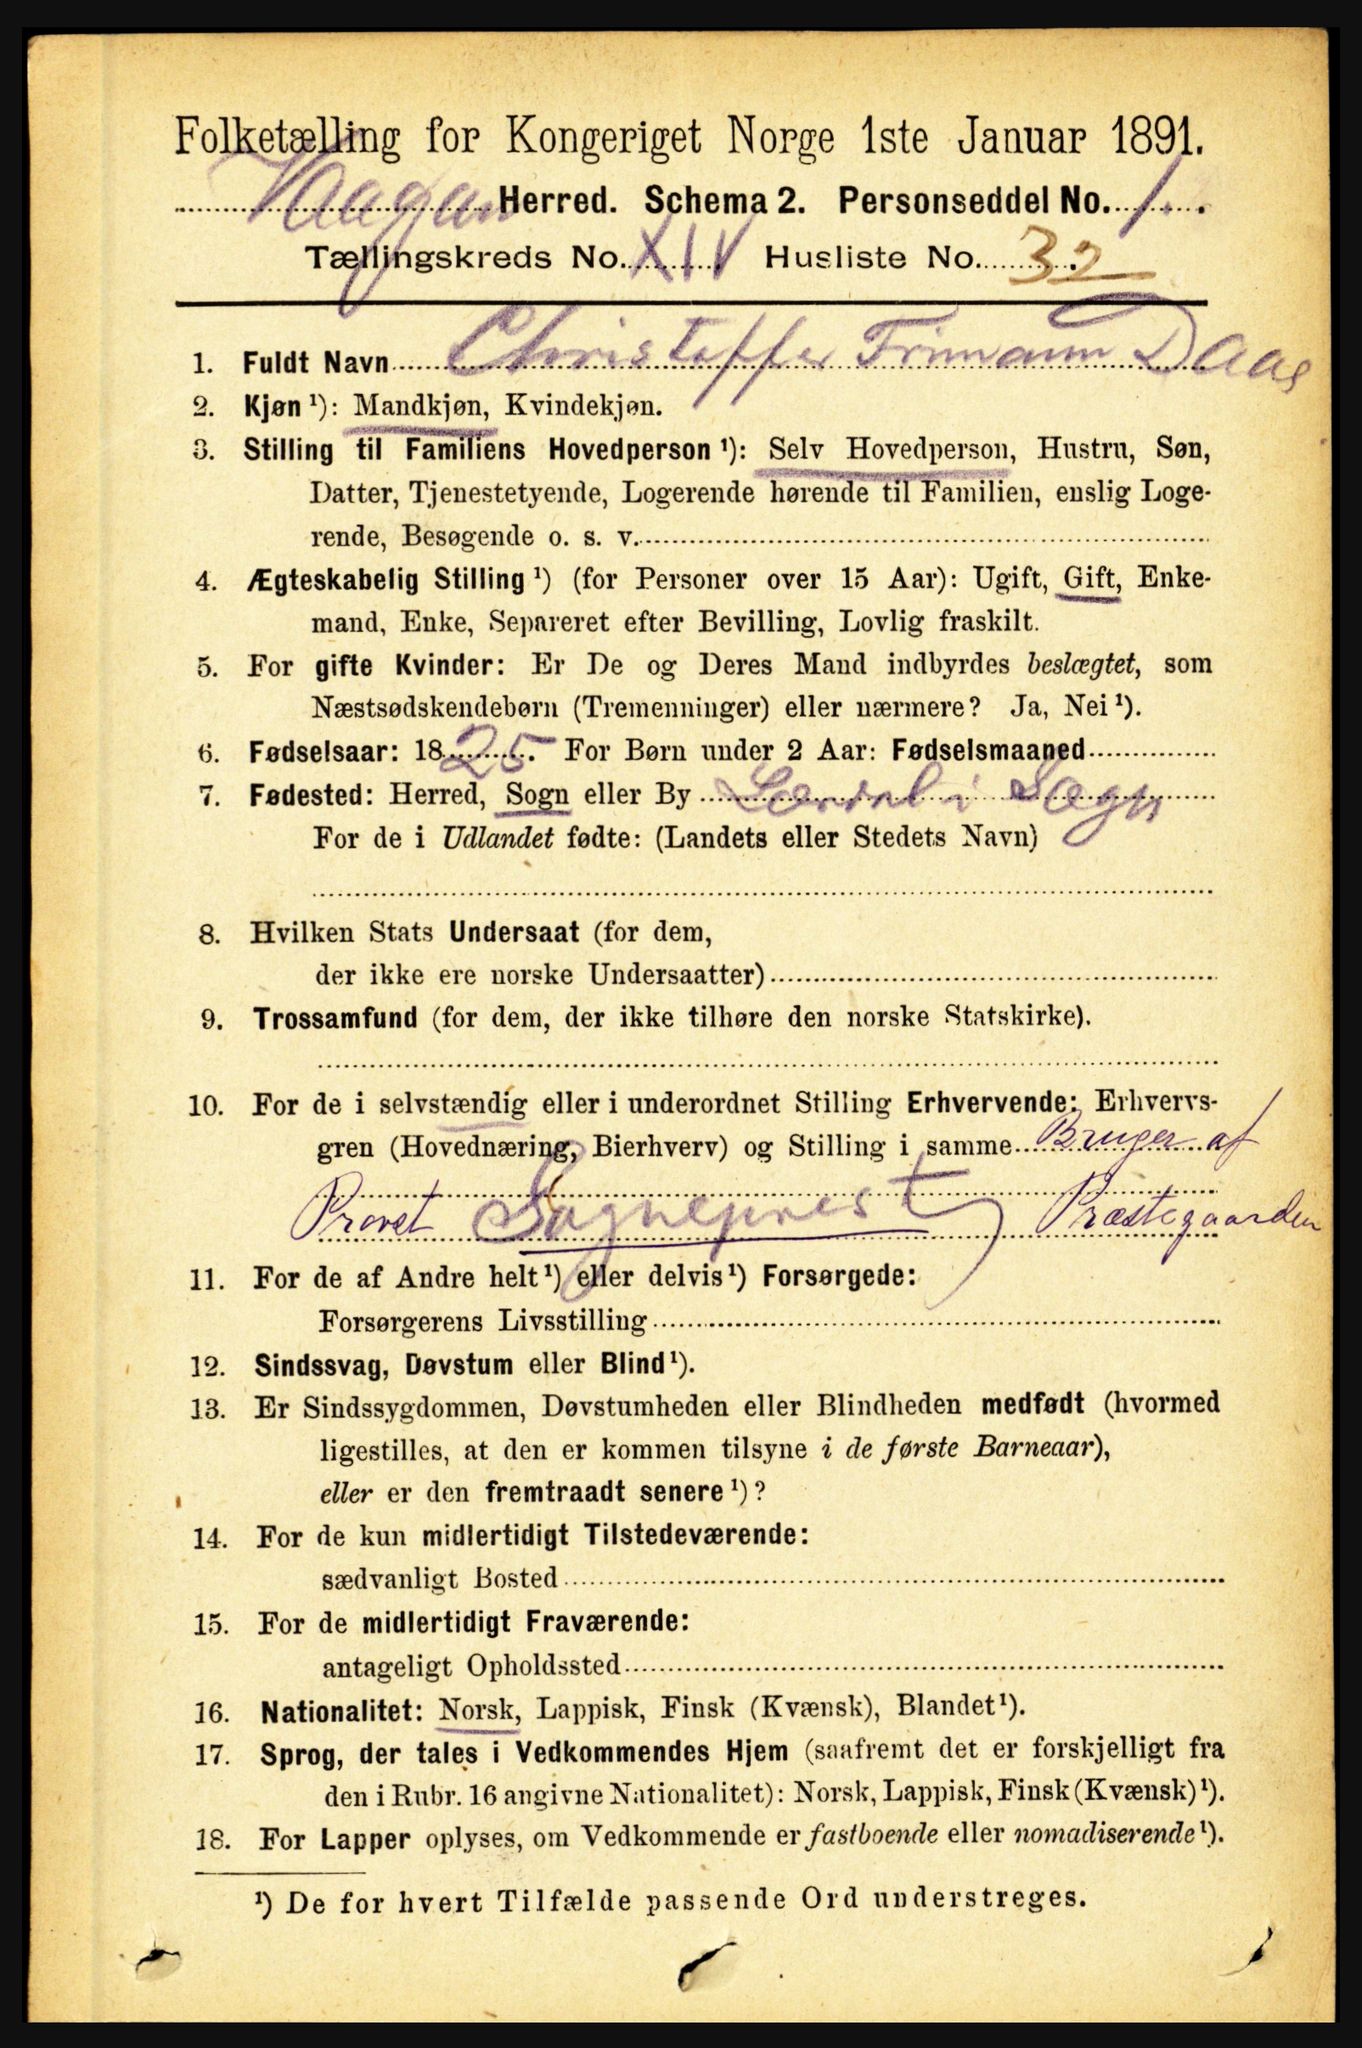 Folketælling for Kongeriget Norge 1ste Januar 1891.
Vaagan Herred. Schema 2. Personseddel No. 1.
Tællingskreds No. XIV Husliste No. 32
1. Fuldt Navn Christoffer Frimann Daae
2. Kjøn ¹): Mandkjøn, Kvindekjøn.
3. Stilling til Familiens Hovedperson ¹): Selv Hovedperson, Hustru, Søn,
Datter, Tjenestetyende, Logerende hørende til Familien, enslig Loge-
rende, Besøgende o. s. v.
4. Ægteskabelig Stilling ¹) (for Personer over 15 Aar): Ugift, Gift, Enke-
mand, Enke, Separeret efter Bevilling, Lovlig fraskilt.
5. For gifte Kvinder: Er De og Deres Mand indbyrdes beslægtet, som
Næstsødskendebørn (Tremenninger) eller nærmere? Ja, Nei ¹).
6. Fødselsaar: 1825. For Børn under 2 Aar: Fødselsmaaned
7. Fødested: Herred, Sogn eller By Lærdal i Sogn
For de i Udlandet fødte: (Landets eller Stedets Navn)
8. Hvilken Stats Undersaat (for dem,
der ikke ere norske Undersaatter)
9. Trossamfund (for dem, der ikke tilhøre den norske Statskirke).
10. For de i selvstændig eller i underordnet Stilling Erhvervende: Erhvervs-
gren (Hovednæring, Bierhverv) og Stilling i samme Bruger af
Provst Sogneprest Præstegaarden
11. For de af Andre helt ¹) eller delvis ¹) Forsørgede:
Forsørgerens Livsstilling
12. Sindssvag, Døvstum eller Blind ¹).
13. Er Sindssygdommen, Døvstumheden eller Blindheden medfødt (hvormed
ligestilles, at den er kommen tilsyne i de første Barneaar),
eller er den fremtraadt senere ¹)?
14. For de kun midlertidigt Tilstedeværende:
sædvanligt Bosted
15. For de midlertidigt Fraværende:
antageligt Opholdssted
16. Nationalitet: Norsk, Lappisk, Finsk (Kvænsk), Blandet ¹).
17. Sprog, der tales i Vedkommendes Hjem (saafremt det er forskjelligt fra
den i Rubr. 16 angivne Nationalitet): Norsk, Lappisk, Finsk (Kvænsk) ¹).
18. For Lapper oplyses, om Vedkommende er fastboende eller nomadiserende ¹).
¹) De for hvert Tilfælde passende Ord understreges.